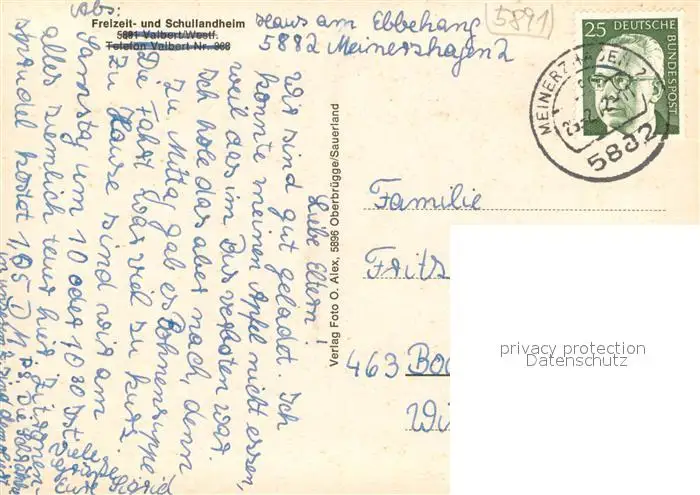 Abs:
Freizeit- und Schullandheim
5891 Valbert/Westf.
Telefon Valbert Nr. 388
Haus am Ebbehang
5882 Meinerzhagen 2
5891
25 DEUTSCHE BUNDESPOST
MEINERZHAGEN 2
5882
Verlag Foto O. Alex, 5896 Oberbrügge/Sauerland
Liebe Eltern!
Wir sind gut gelandet. Ich
konnte meinen Apfel nicht essen,
weil das im Bus verboten war.
Ich hole das aber nach, denn
zu Mittag gab es Bohnensuppe
Die Fahrt war viel zu kurz.
Zu Hause sind wir am
Samstag um 10 oder 10³⁰ Ist
alles ziemlich teuer hier. Zitronen-
sprudel kostet 1,05 DM
Viele
Grüße
Eure
Familie
Fritz
463 Bo
Wi
privacy protection
Datenschutz